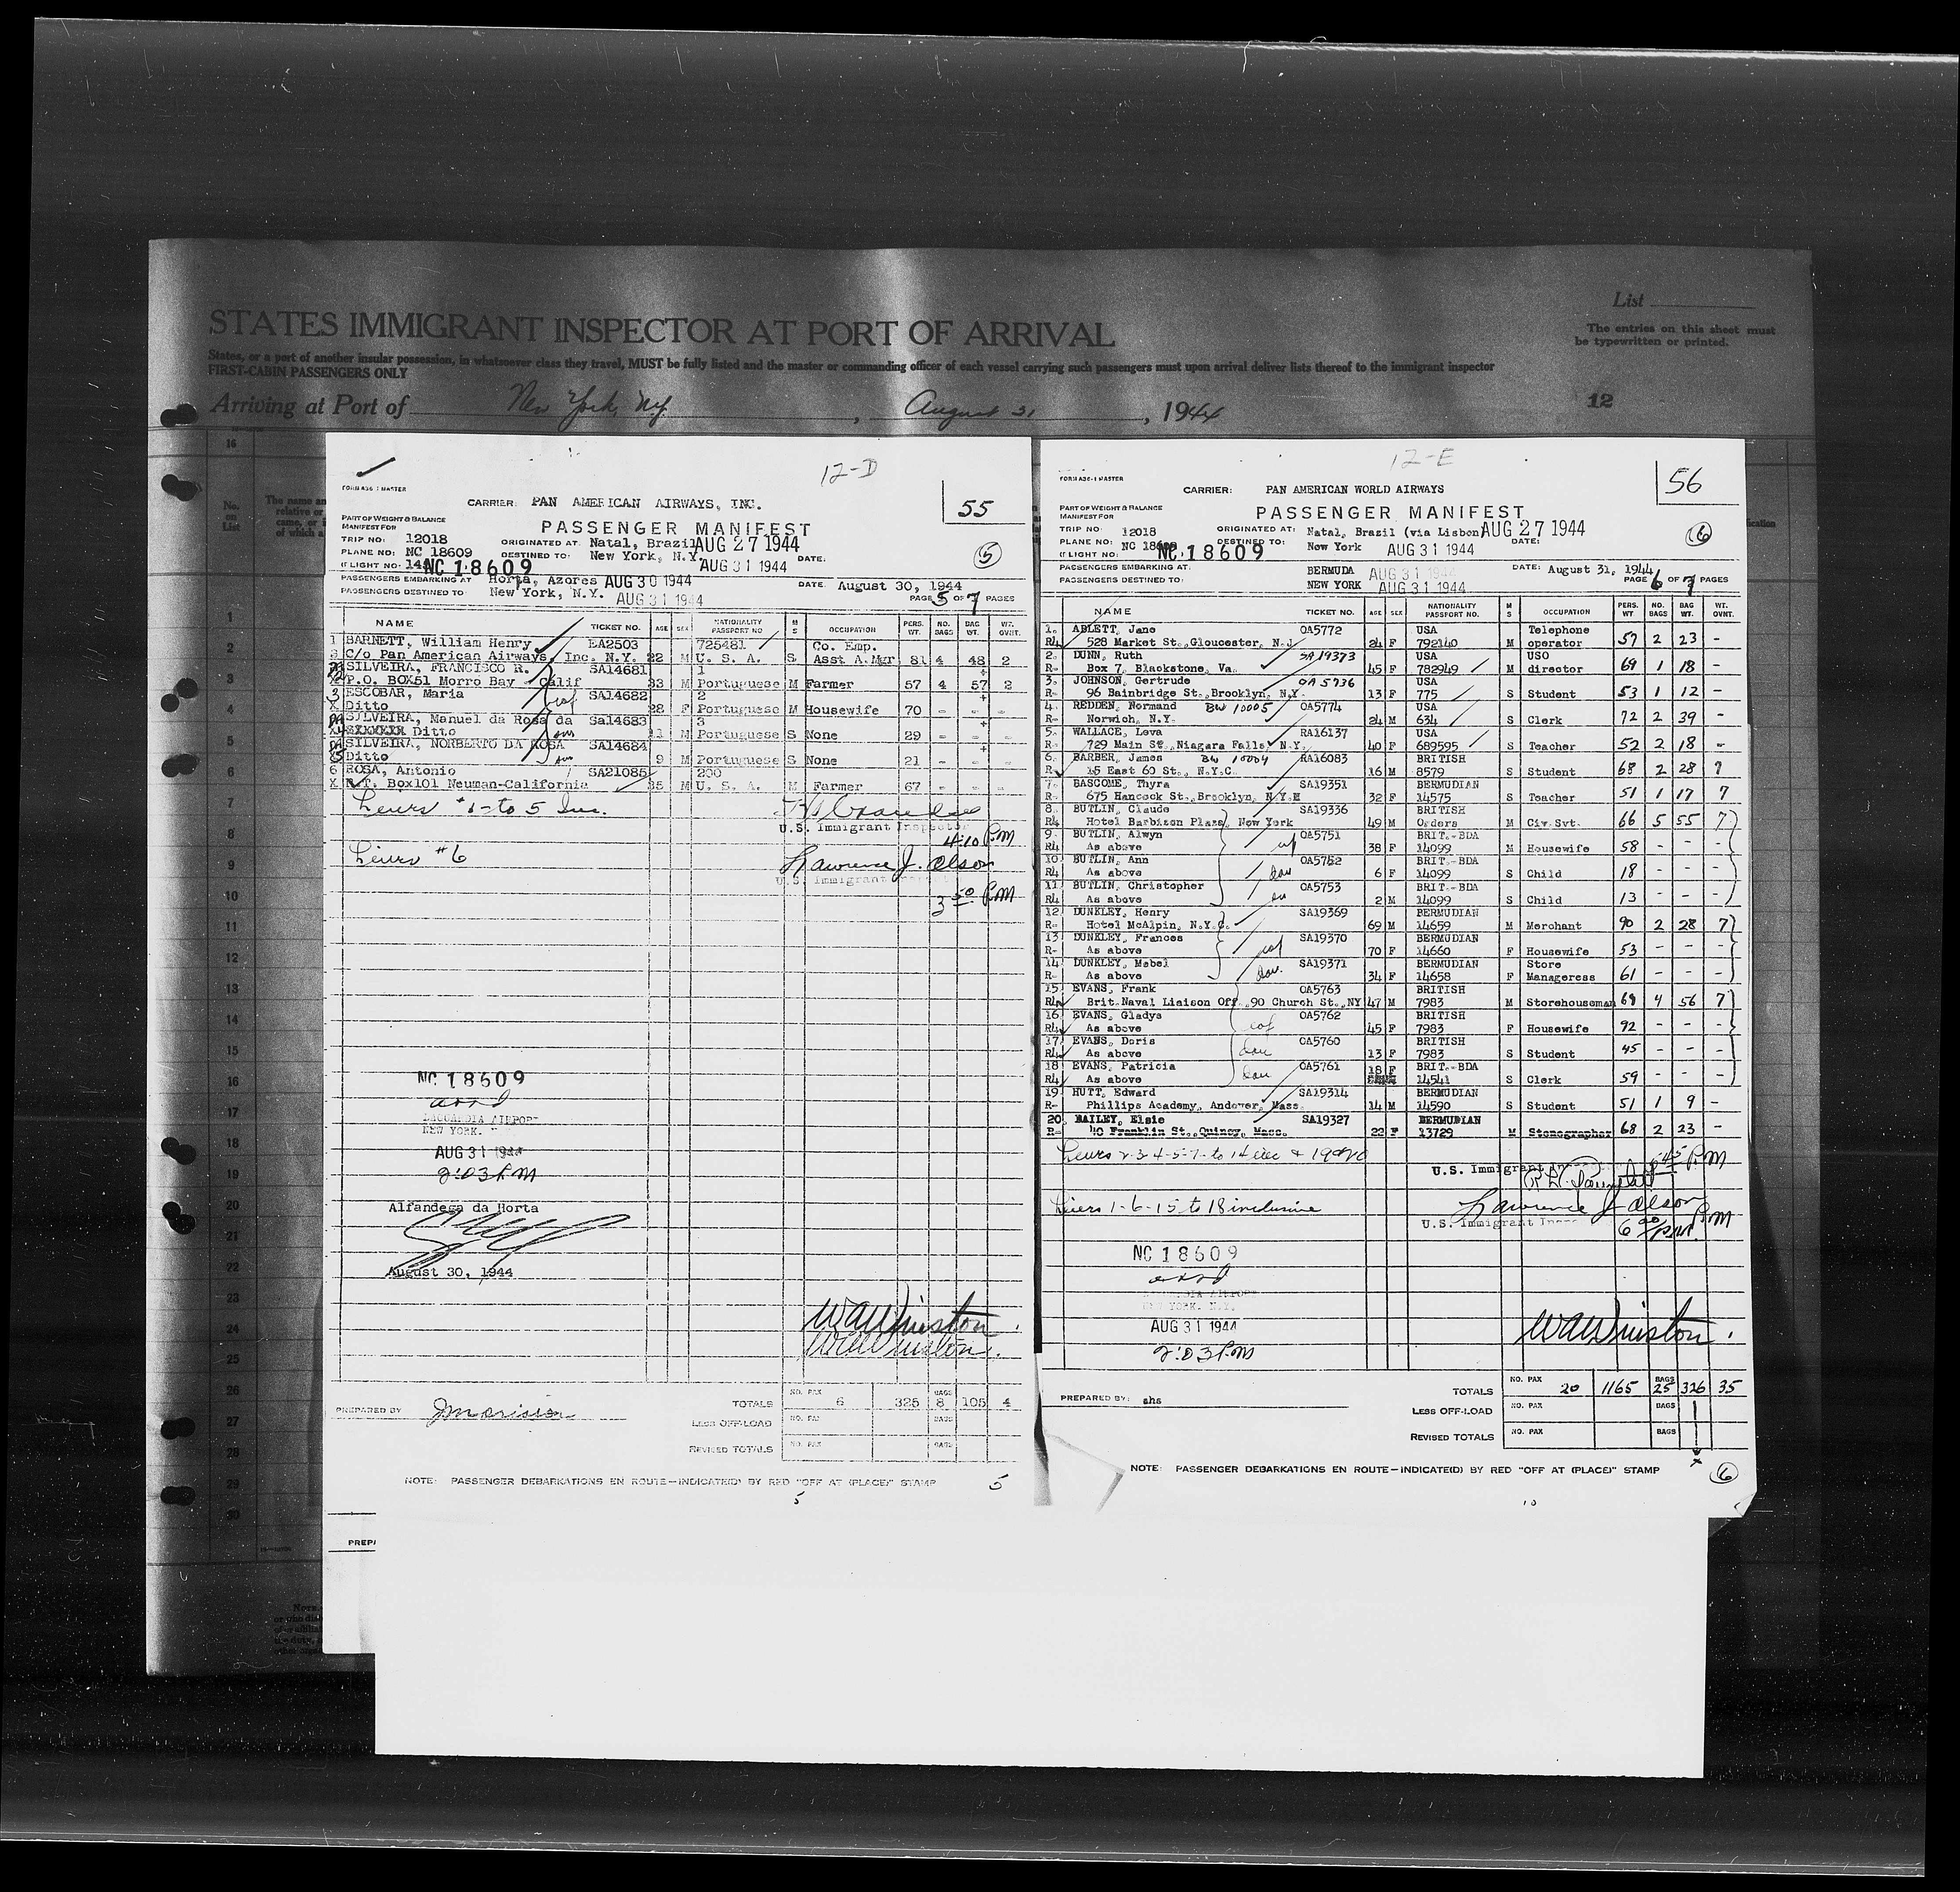 List
STATES IMMIGRANT INSPECTOR AT PORT OF ARRIVAL
The entries on this sheet must
be typewritten or printed.
States, or a port of another insular possession, in whatsoever class they travel, MUST be fully listed and the master or commanding officer of each vessel carrying such passengers must upon arrival deliver lists thereof to the immigrant inspector
FIRST-CABIN PASSENGERS ONLY
Arriving at Port of New York, N.Y. , August 31 , 1944
12
16
No.
on
List
1
2
3
4
5
6
7
8
9
10
11
12
13
14
15
16
17
18
19
20
21
22
23
24
25
26
27
28
29
30
12-D
55
CARRIER: PAN AMERICAN AIRWAYS, INC.
PART OF WEIGHT & BALANCE
MANIFEST FOR
PASSENGER MANIFEST
TRIP NO: 12018
ORIGINATED AT: Natal, Brazil AUG 27 1944
PLANE NO: NC 18609
DESTINED TO: New York, N.Y. AUG 31 1944 DATE:
5
FLIGHT NO: NC 18609
PASSENGERS EMBARKING AT Horta, Azores AUG 30 1944 DATE: August 30, 1944
PASSENGERS DESTINED TO: New York, N.Y. AUG 31 1944 PAGE 5 OF 7 PAGES
NAME TICKET NO. AGE SEX NATIONALITY PASSPORT NO M S OCCUPATION PERS. WT NO. BAGS BAG WT. WT. OVNT.
1 BARNETT, William Henry EA2503 725481 Co. Emp.
C/o Pan American Airways, Inc. N.Y. 22 M U. S. A. S Asst A.Mgr 81 4 48 2
SILVEIRA, FRANCISCO R. SA14681 1
P.O. BOX51 Morro Bay Calif 33 M Portuguese M Farmer 57 4 57 2
3 ESCOBAR, Maria SA14682 2
Ditto 28 F Portuguese M Housewife 70 - - -
SILVEIRA, Manuel da Rosa da SA14683 3
Ditto 11 M Portuguese S None 29 - - -
SILVEIRA, NORBERTO DA ROSA SA14684
Ditto 9 M Portuguese S None 21 - - -
6 ROSA, Antonio SA21085 200
R.T. Box101 Neuman-California 35 M U. S. A. M Farmer 67 - - -
U.S. Immigrant Inspector
4:10 PM
#6
Lawrence J. Olson
U.S. Immigrant
3 50 P.M
NC 18609
arrd
LAGUARDIA AIRPORT
NEW YORK.
AUG 31 1944
2:03 P.M
Alfandega da Horta
August 30, 1944
WAWinston
WAWinston.
PREPARED BY
TOTALS NO. PAX 6 325 BAGS 8 105 4
LESS OFF-LOAD NO. PAX BAGS
REVISED TOTALS NO. PAX BAGS
NOTE: PASSENGER DEBARKATIONS EN ROUTE—INDICATE(D) BY RED "OFF AT (PLACE)" STAMP 5
5
PREPA
12-E
56
FORM A36-1 MASTER
CARRIER: PAN AMERICAN WORLD AIRWAYS
PART OF WEIGHT & BALANCE
MANIFEST FOR
PASSENGER MANIFEST
TRIP NO: 12018
ORIGINATED AT: Natal, Brazil (via Lisbon) AUG 27 1944
6
PLANE NO: NC 18609
DESTINED TO: New York AUG 31 1944 DATE:
FLIGHT NO: NC 18609
PASSENGERS EMBARKING AT: BERMUDA AUG 31 1944 DATE: August 31, 1944
PASSENGERS DESTINED TO: NEW YORK AUG 31 1944 PAGE 6 OF 7 PAGES
NAME TICKET NO. AGE SEX NATIONALITY PASSPORT NO. M S OCCUPATION PERS. WT. NO. BAGS BAG WT. WT. OVNT.
1. ABLETT, Jane OA5772 USA Telephone
R4 528 Market St., Gloucester, N.J. 24 F 792140 M operator 57 2 23 -
2. DUNN, Ruth SA19373 USA USO
R- Box 7, Blackstone, Va. 45 F 782949 M director 69 1 18 -
3. JOHNSON, Gertrude OA5736 USA
R- 96 Bainbridge St., Brooklyn, N.Y. 13 F 775 S Student 53 1 12 -
4. REDDEN, Normand BW 10005 OA5774 USA
R- Norwich, N.Y. 24 M 634 S Clerk 72 2 39 -
5. WALLACE, Leva RA16137 USA
R- 729 Main St., Niagara Falls, N.Y. 40 F 689595 S Teacher 52 2 18 -
6. BARBER, James BW 10004 RA16083 BRITISH
R- 15 East 60 St., N.Y.C. 16 M 8579 S Student 68 2 28 7
7. BASCOME, Thyra SA19351 BERMUDIAN
R- 675 Hancock St., Brooklyn, N.Y. 32 F 14575 S Teacher 51 1 17 7
8. BUTLIN, Claude SA19336 BRITISH
R4 Hotel Barbizon Plaza, New York 49 M Orders M Civ.Svt. 66 5 55 7
9. BUTLIN, Alwyn OA5751 BRIT.-BDA
R4 As above wf 38 F 14099 M Housewife 58 - - -
10. BUTLIN, Ann OA5752 BRIT.-BDA
R4 As above dau 6 F 14099 S Child 18 - - -
11. BUTLIN, Christopher OA5753 BRIT.-BDA
R4 As above 2 M 14099 S Child 13 - - -
12 DUNKLEY, Henry SA19369 BERMUDIAN
R- Hotel McAlpin, N.Y.C. 69 M 14659 M Merchant 90 2 28 7
13 DUNKLEY, Frances SA19370 BERMUDIAN
R- As above wf 70 F 14660 F Housewife 53 - - -
14 DUNKLEY, Mabel SA19371 BERMUDIAN Store
R- As above dau. 34 F 14658 F Manageress 61 - - -
15 EVANS, Frank OA5763 BRITISH
R4 Brit.Naval Liaison Off.,90 Church St.,NY 47 M 7983 M Storehouseman 69 4 56 7
16 EVANS, Gladys OA5762 BRITISH
R4 As above wf 45 F 7983 F Housewife 92 - - -
17 EVANS, Doris OA5760 BRITISH
R4 As above dau 13 F 7983 S Student 45 - - -
18 EVANS, Patricia OA5761 18 F BRIT.-BDA
R4 As above dau 14541 S Clerk 59 - - -
19 HUTT, Edward SA19314 BERMUDIAN
R- Phillips Academy, Andover, Mass. 14 M 14590 S Student 51 1 9 -
20 BAILEY, Elsie SA19327 BERMUDIAN
R- 40 Franklin St., Quincy, Mass. 22 F 13729 M Stenographer 68 2 23 -
U.S. Immigrant
Lawrence J Olson
1-6-15 to 18 inclusive
U.S. Immigrant
6 00 P.M
NC 18609
arrd
LAGUARDIA AIRPORT
NEW YORK, N.Y.
AUG 31 1944
2:03 P.M
WAWinston.
PREPARED BY: ahs
TOTALS NO. PAX 20 1165 BAGS 25 326 35
LESS OFF-LOAD NO. PAX BAGS
REVISED TOTALS NO. PAX BAGS
NOTE: PASSENGER DEBARKATIONS EN ROUTE—INDICATE(D) BY RED "OFF AT (PLACE)" STAMP 6